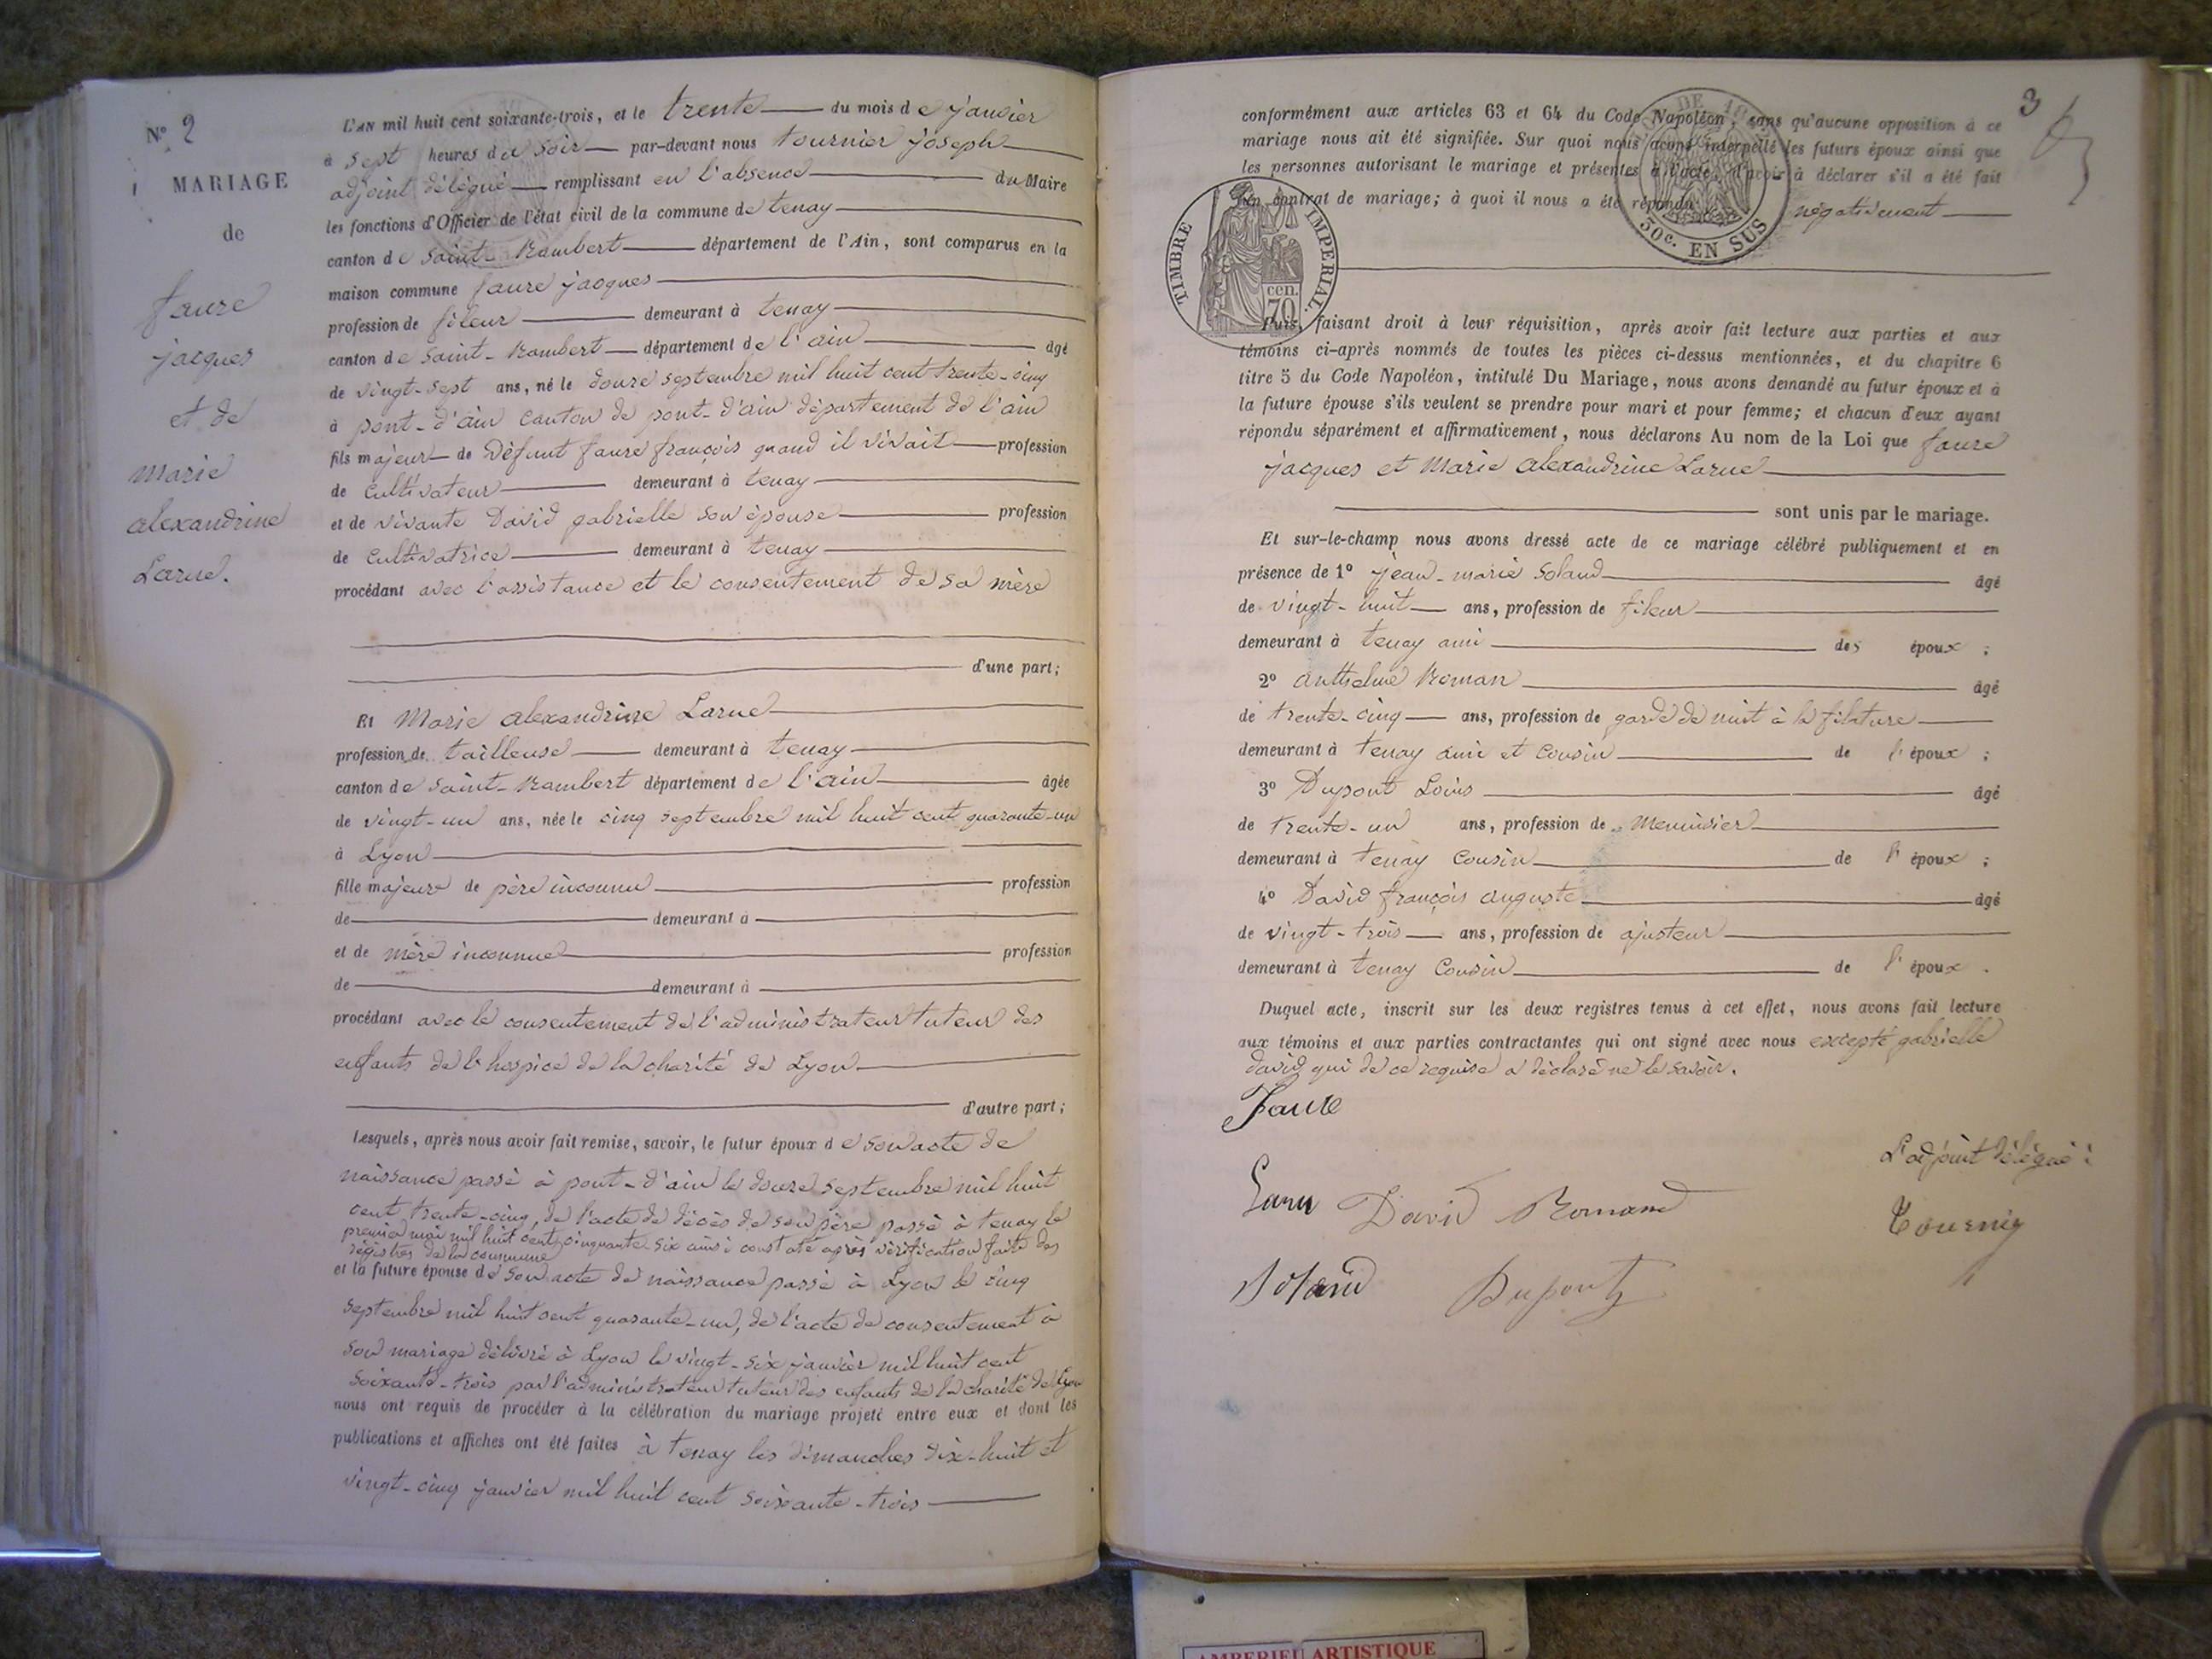 N° 2
MARIAGE
de
faure
jacques
et de
marie
alexandrine
Larue.
L'AN mil huit cent soixante-trois, et le trente du mois de janvier
à sept heures du soir par-devant nous tournier joseph
adjoint délégué remplissant en l'absence du Maire
les fonctions d'Officier de l'état civil de la commune de tenay
canton de saint-Rambert département de l'Ain, sont comparus en la
maison commune faure jacques
profession de fileur demeurant à tenay
canton de saint-Rambert département de l'ain âgé
de vingt-sept ans, né le douze septembre mil huit cent trente-cinq
à pont-d'ain canton de pont-d'ain département de l'ain
fils majeur de Défunt faure françois quand il vivait profession
de cultivateur demeurant à tenay
et de vivante David gabrielle son épouse profession
de cultivatrice demeurant à tenay
procédant avec l'assistance et le consentement de sa mère
d'une part;
Et Marie alexandrine Larue
profession de tailleuse demeurant à tenay
canton de saint-Rambert département de l'ain âgée
de vingt-un ans, née le cinq septembre mil huit cent quarante-un
à Lyon
fille majeure de père inconnu profession
de demeurant à
et de mère inconnue profession
de demeurant à
procédant avec le consentement de l'administrateur tuteur des
enfants de l'hospice de la charité de Lyon
d'autre part;
Lesquels, après nous avoir fait remise, savoir, le futur époux de son acte de
naissance passé à pont-d'ain le douze septembre mil huit
cent trente-cinq, de l'acte de décès de son père passé à tenay le
premier mai mil huit cent cinquante-six ainsi constaté après vérification faite des
régistres de la commune
et la future épouse de son acte de naissance passé à Lyon le cinq
septembre mil huit cent quarante-un, de l'acte de consentement à
son mariage délivré à Lyon le vingt-six janvier mil huit cent
soixante-trois par l'administrateur tuteur des enfants de la charité de Lyon
nous ont requis de procéder à la célébration du mariage projeté entre eux et dont les
publications et affiches ont été faites à tenay les dimanches dix-huit et
vingt-cinq janvier mil huit cent soixante-trois
3
conformément aux articles 63 et 64 du Code Napoléon, sans qu'aucune opposition à ce
mariage nous ait été signifiée. Sur quoi nous avons interpellé les futurs époux ainsi que
les personnes autorisant le mariage et présentes à l'acte, d'avoir à déclarer s'il a été fait
un contrat de mariage; à quoi il nous a été répondu négativement
30c. EN SUS
TIMBRE IMPERIAL.
cen.
70
Puis, faisant droit à leur réquisition, après avoir fait lecture aux parties et aux
témoins ci-après nommés de toutes les pièces ci-dessus mentionnées, et du chapitre 6
titre 5 du Code Napoléon, intitulé Du Mariage, nous avons demandé au futur époux et à
la future épouse s'ils veulent se prendre pour mari et pour femme; et chacun d'eux ayant
répondu séparément et affirmativement, nous déclarons Au nom de la Loi que faure
jacques et Marie alexandrine Larue
sont unis par le mariage.
Et sur-le-champ nous avons dressé acte de ce mariage célébré publiquement et en
présence de 1° jean-marie Soland âgé
de vingt-huit ans, profession de fileur
demeurant à tenay ami des époux ;
2° anthelme Roman âgé
de trente-cinq ans, profession de garde de nuit à la filature
demeurant à tenay ami et cousin de l'époux ;
3° Dupont Louis âgé
de trente-un ans, profession de Menuisier
demeurant à tenay cousin de l'époux ;
4° David françois auguste âgé
de vingt-trois ans, profession de ajusteur
demeurant à tenay Cousin de l'époux .
Duquel acte, inscrit sur les deux registres tenus à cet effet, nous avons fait lecture
aux témoins et aux parties contractantes qui ont signé avec nous excepté gabrielle
david qui de ce requise a déclaré ne le savoir.
Faure
L'adjoint délégué :
Larue David Romand
Tournier
Soland Dupont
AMBERIEU ARTISTIQUE